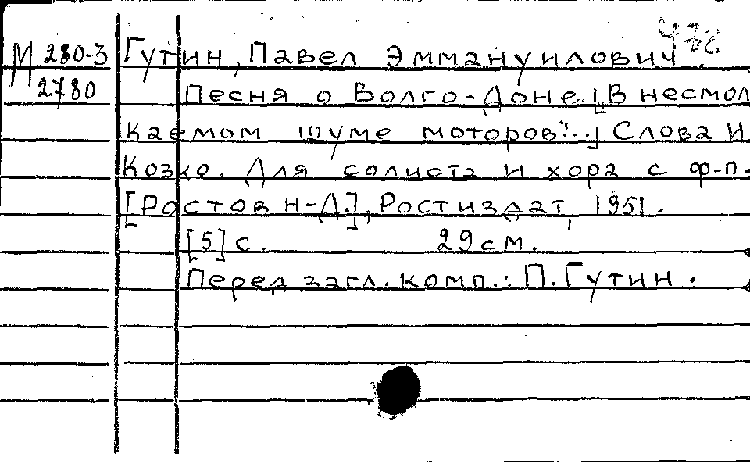 478
М 280-3 Гутин, Павел Эммануилович
2780 Песня о Волго-Доне. [В несмол
каемом шуме моторов...] Слова И.
Козко. Для солиста и хора с ф-п.
[Ростов н-Д.], Ростиздат, 1951.
[5] с. 29 см.
Перед загл. комп.: П. Гутин.